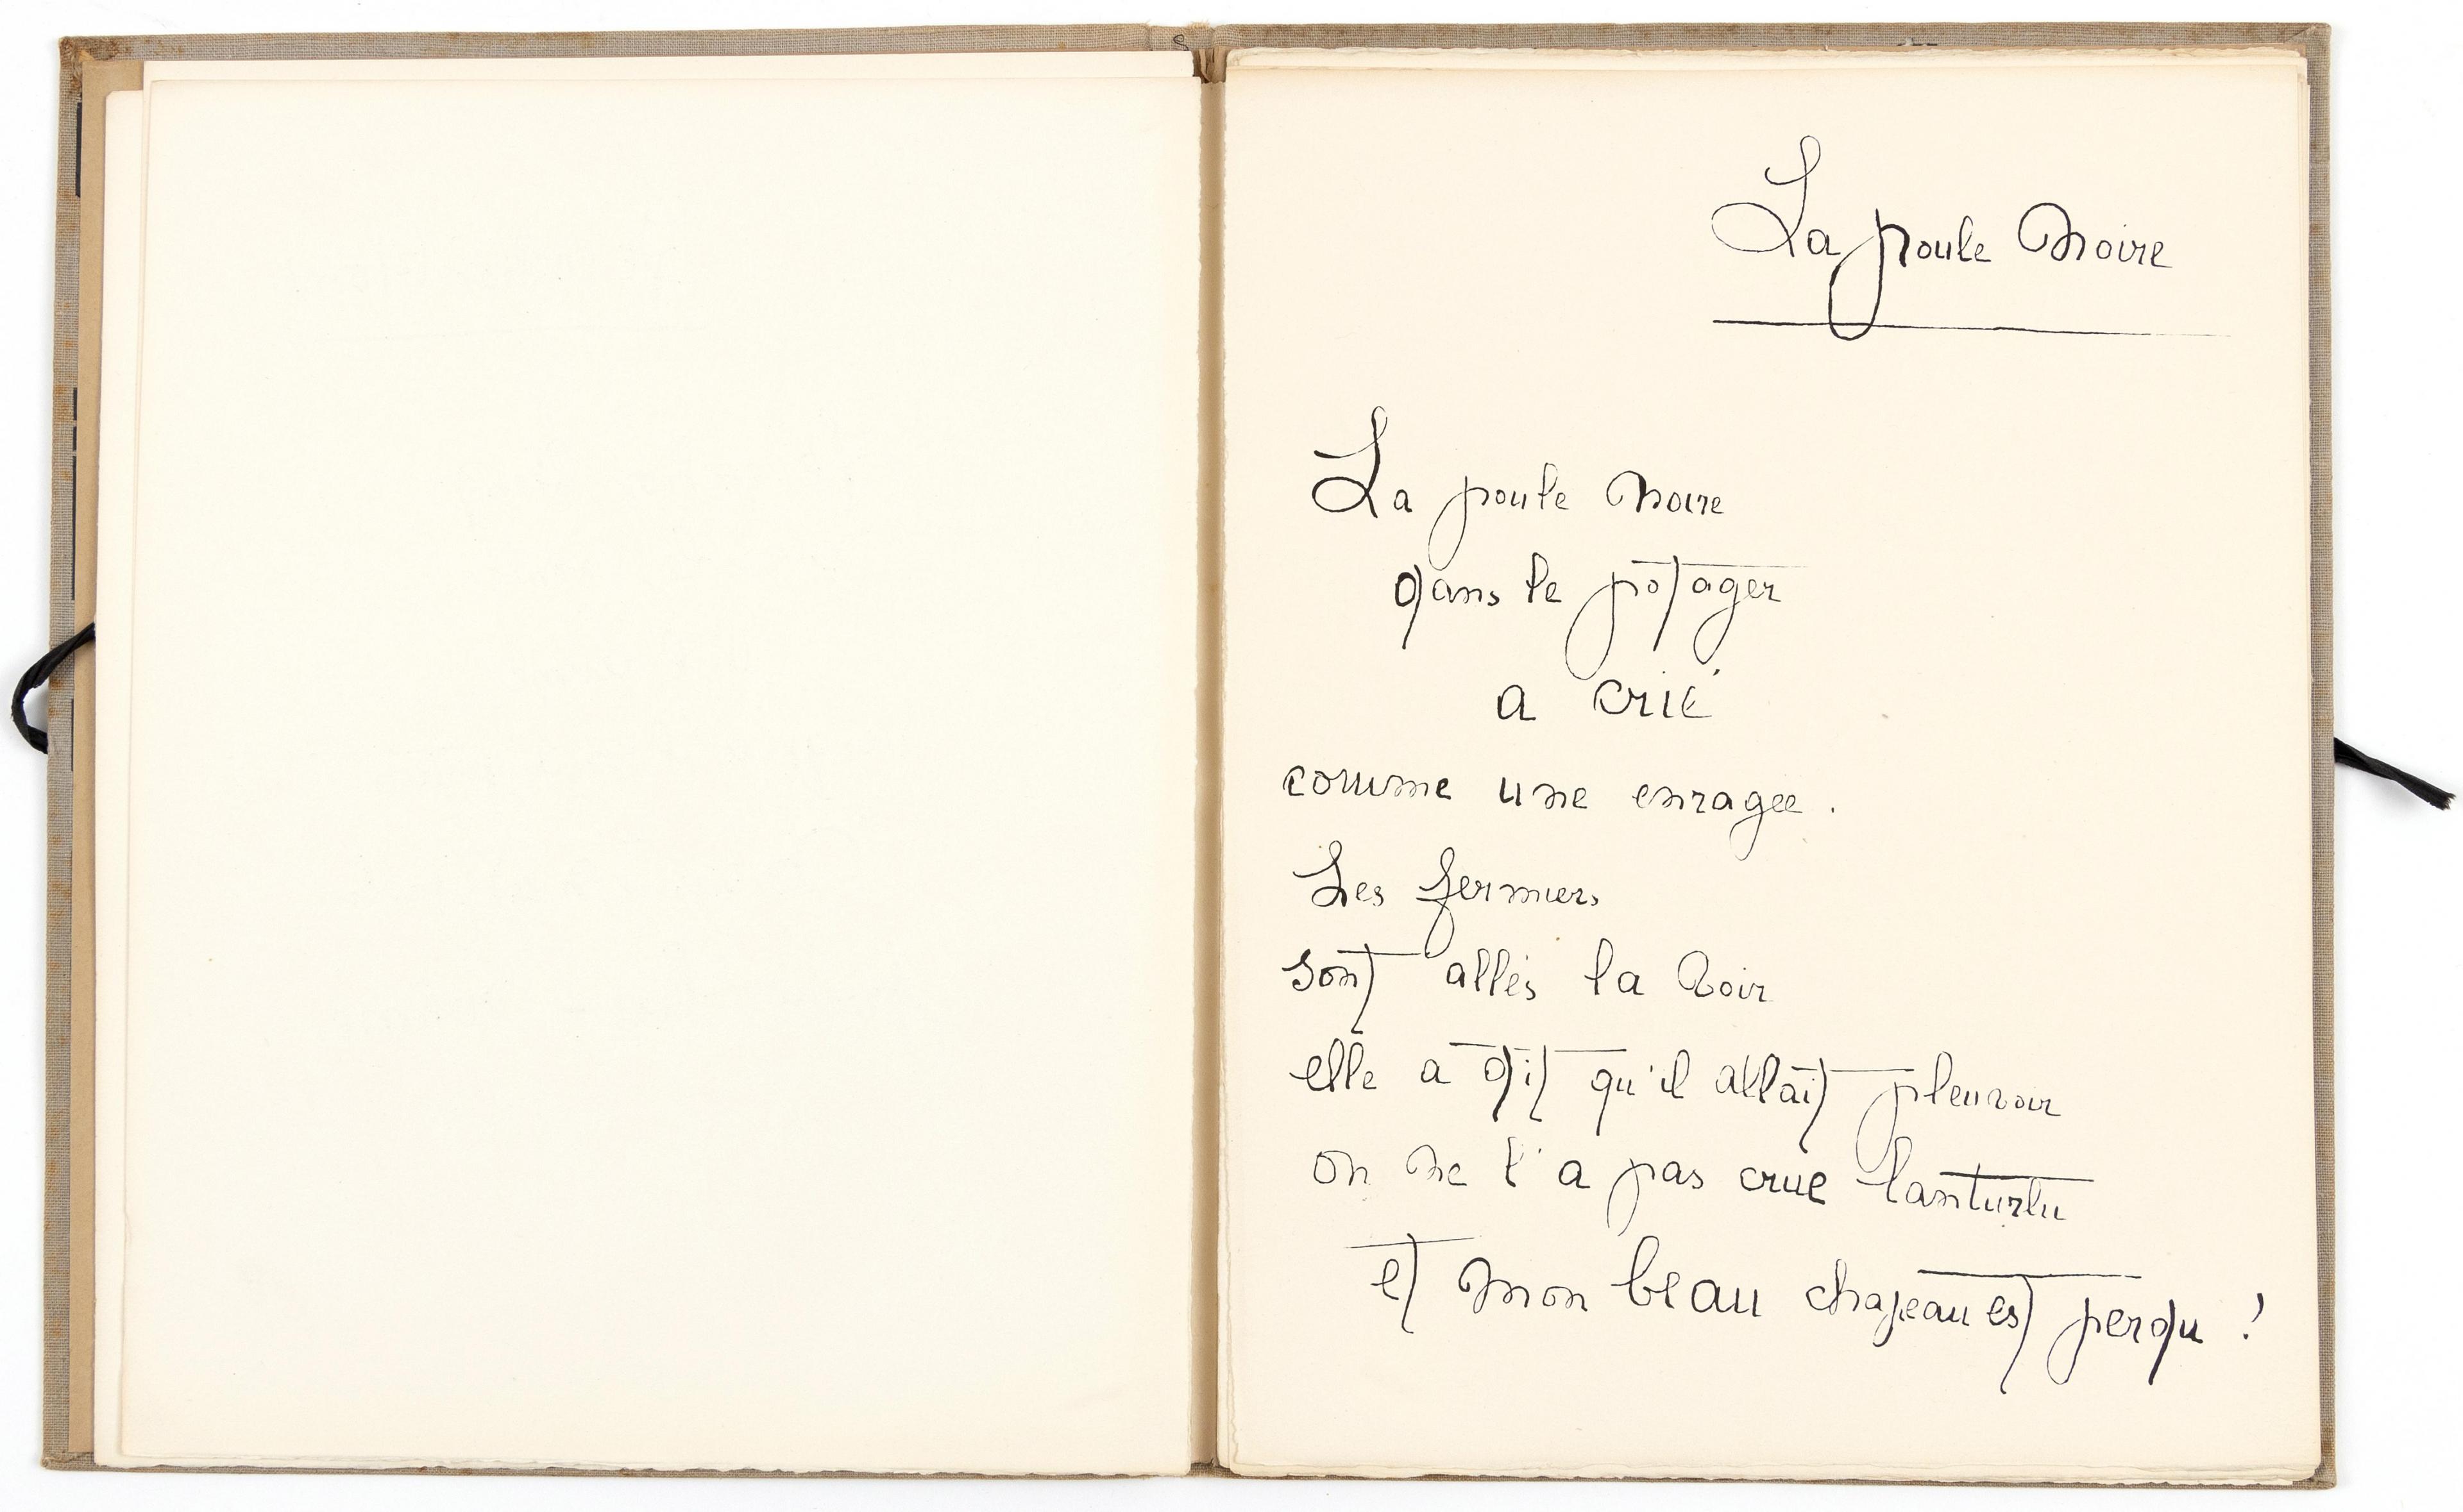 La poule Noire
La poule Noire
dans le potager
a crié
comme une enragee.
Les fermiers
sont allés la Voir
elle a dit qu'il allait pleuvoir
on ne l'a pas crue lanturlu
et Mon beau chapeau est perdu !